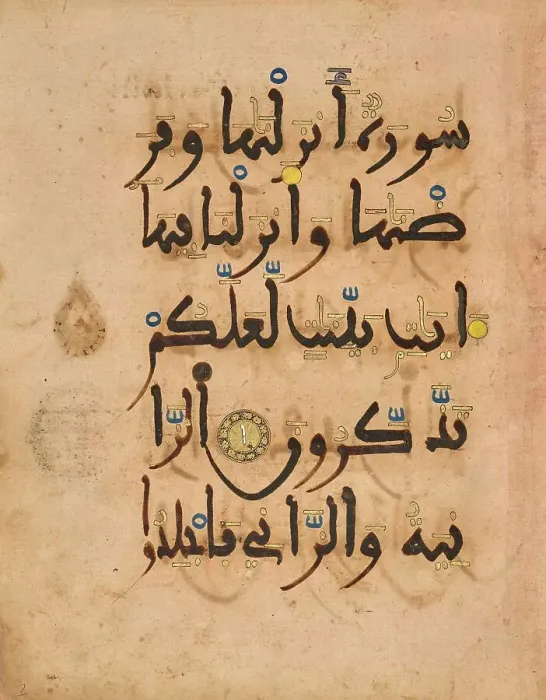 سُورَةٌ أَنزَلْنَٰهَا وَفَرَ
ضْنَٰهَا وَأَنزَلْنَا فِيهَا
ءَايَٰتٍ بَيِّنَٰتٍ لَّعَلَّكُمْ
تَذَّكَّرُونَ ا اَلزَّا
نِيَةُ وَالزَّانِي فَاجْلِدُوا